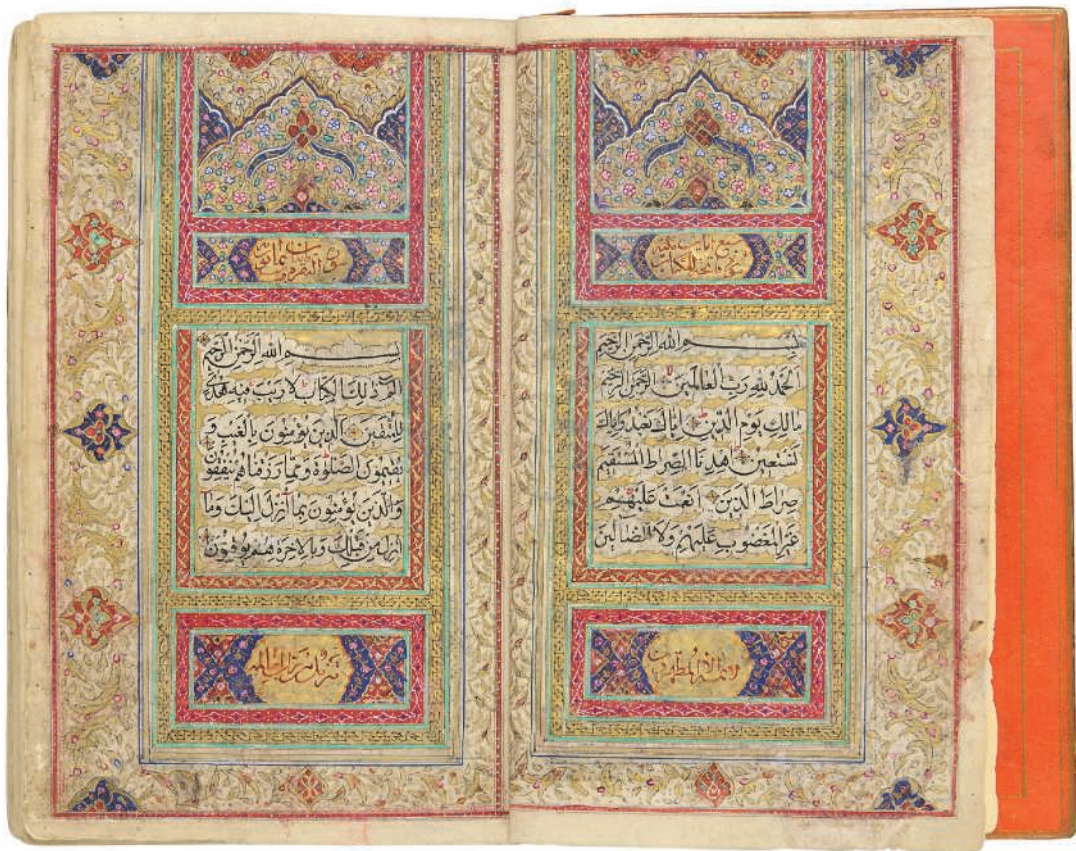 بسم الله الرحمن الرحیم
الحمد لله رب العالمین الرحمن الرحیم
مالك یوم الدین ایاك نعبد وایاك
نستعین اهدنا الصراط المستقیم
صراط الذین انعمت علیهم
غیر المغضوب علیهم ولا الضالین
لا یمسه الا المطهرون
بسم الله الرحمن الرحیم
الم ذلك الكتاب لا ریب فیه هدی
للمتقین الذین یؤمنون بالغیب و
یقیمون الصلوة ومما رزقناهم ینفقون
والذین یؤمنون بما انزل الیك وما
انزل من قبلك وبالاخرة هم یوقنون
تنزیل من رب العالمین